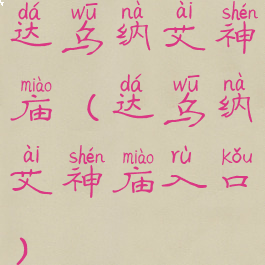 dá wū nà ài shén
达乌纳艾神
miào dá wū nà
庙(达乌纳
ài shén miào rù kǒu
艾神庙入口
)